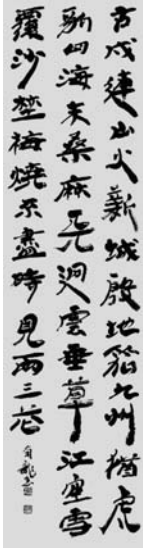 古戍連山火新城殷地笳九州猶虎
豹四海未桑麻天迥雲垂草江空雪
覆沙埜梅燒不盡時見兩三花